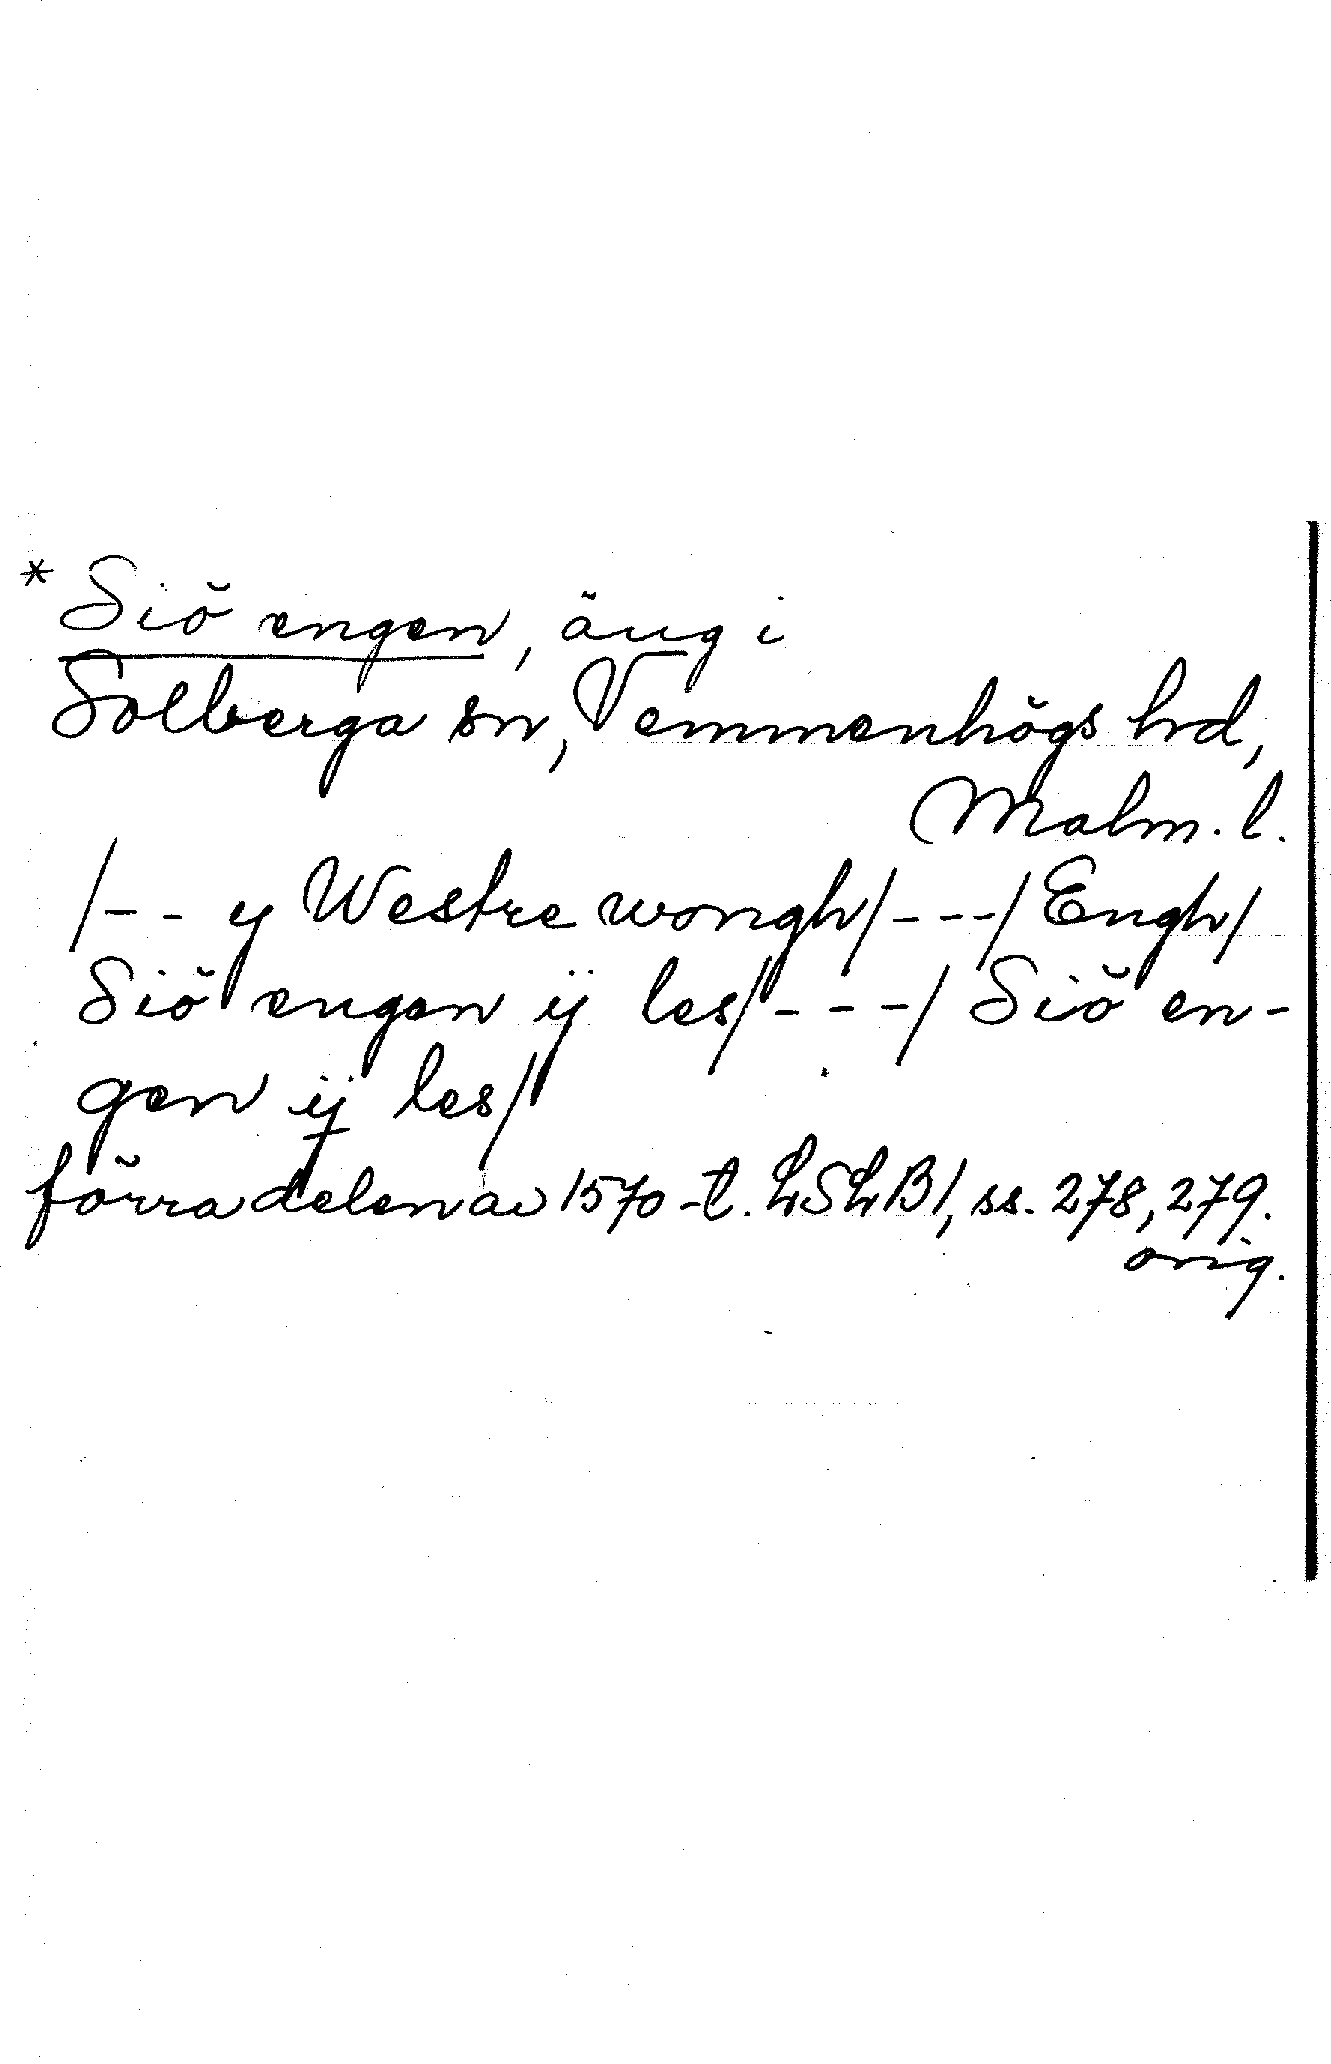 * Siö engen, äng i
Solberga sn, Vemmenhögs hd,
Malm. l.
/- - y Westre wongh/- - -/ Engh/
Siö engen ij les/- - -/ Siö en-
gen ij les/
förra delen av 1570-t. LSLB1, ss. 278, 279.
orig.